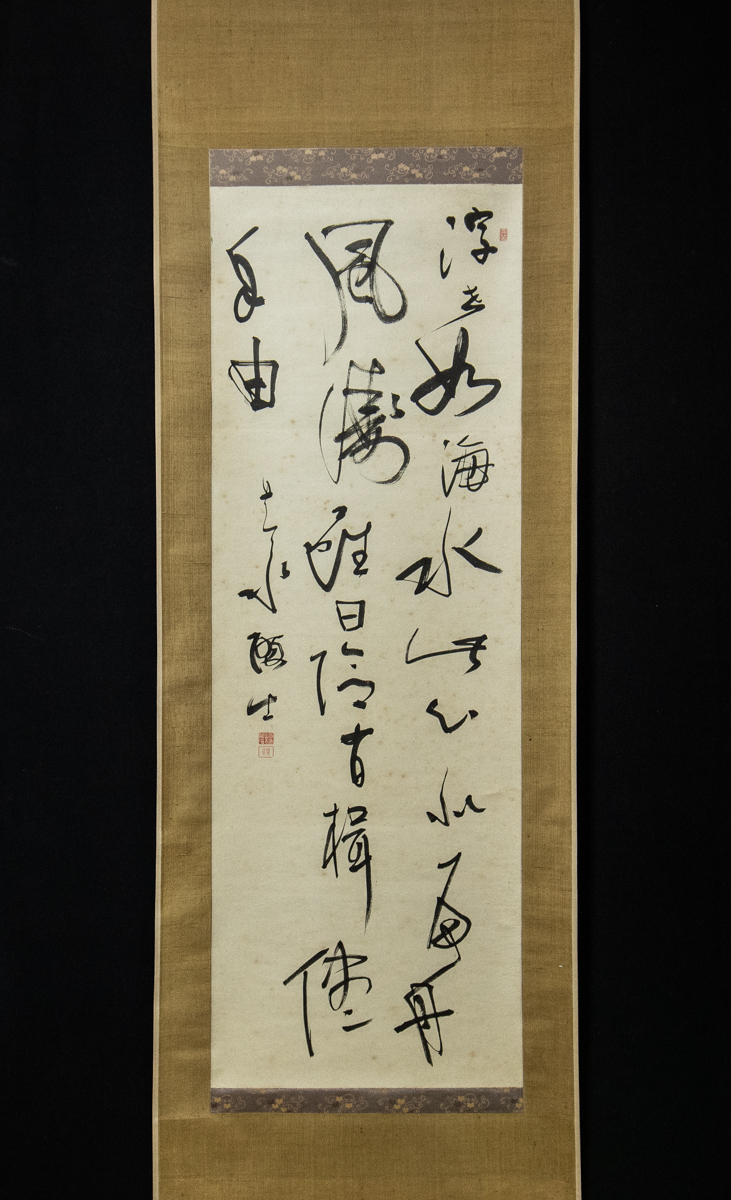 浮世如海水此心似扁舟
風濤雖日險有楫
自由